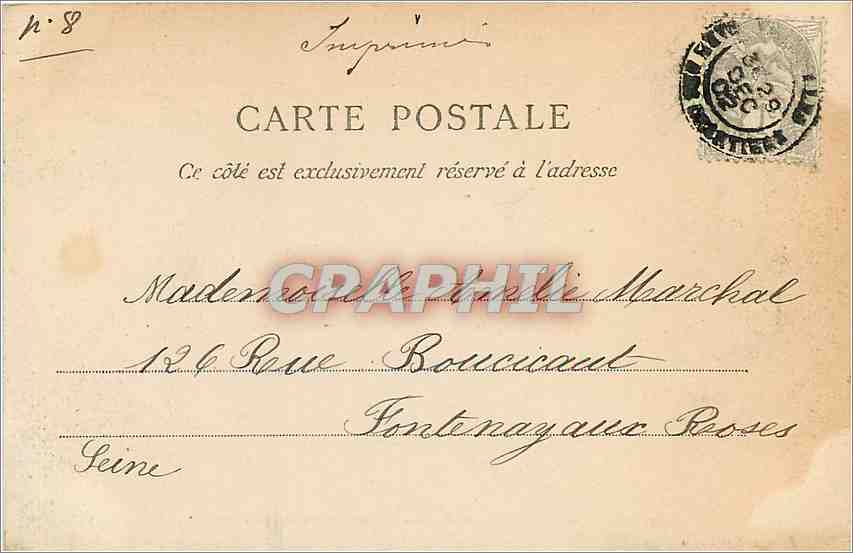 n. 8
Imprimés
CARTE POSTALE
Ce côté est exclusivement réservé à l'adresse
28
DEC
02
CPAPHIL
Mademoiselle Amélie Marchal
126 Rue Boucicaut
Fontenay aux Roses
Seine